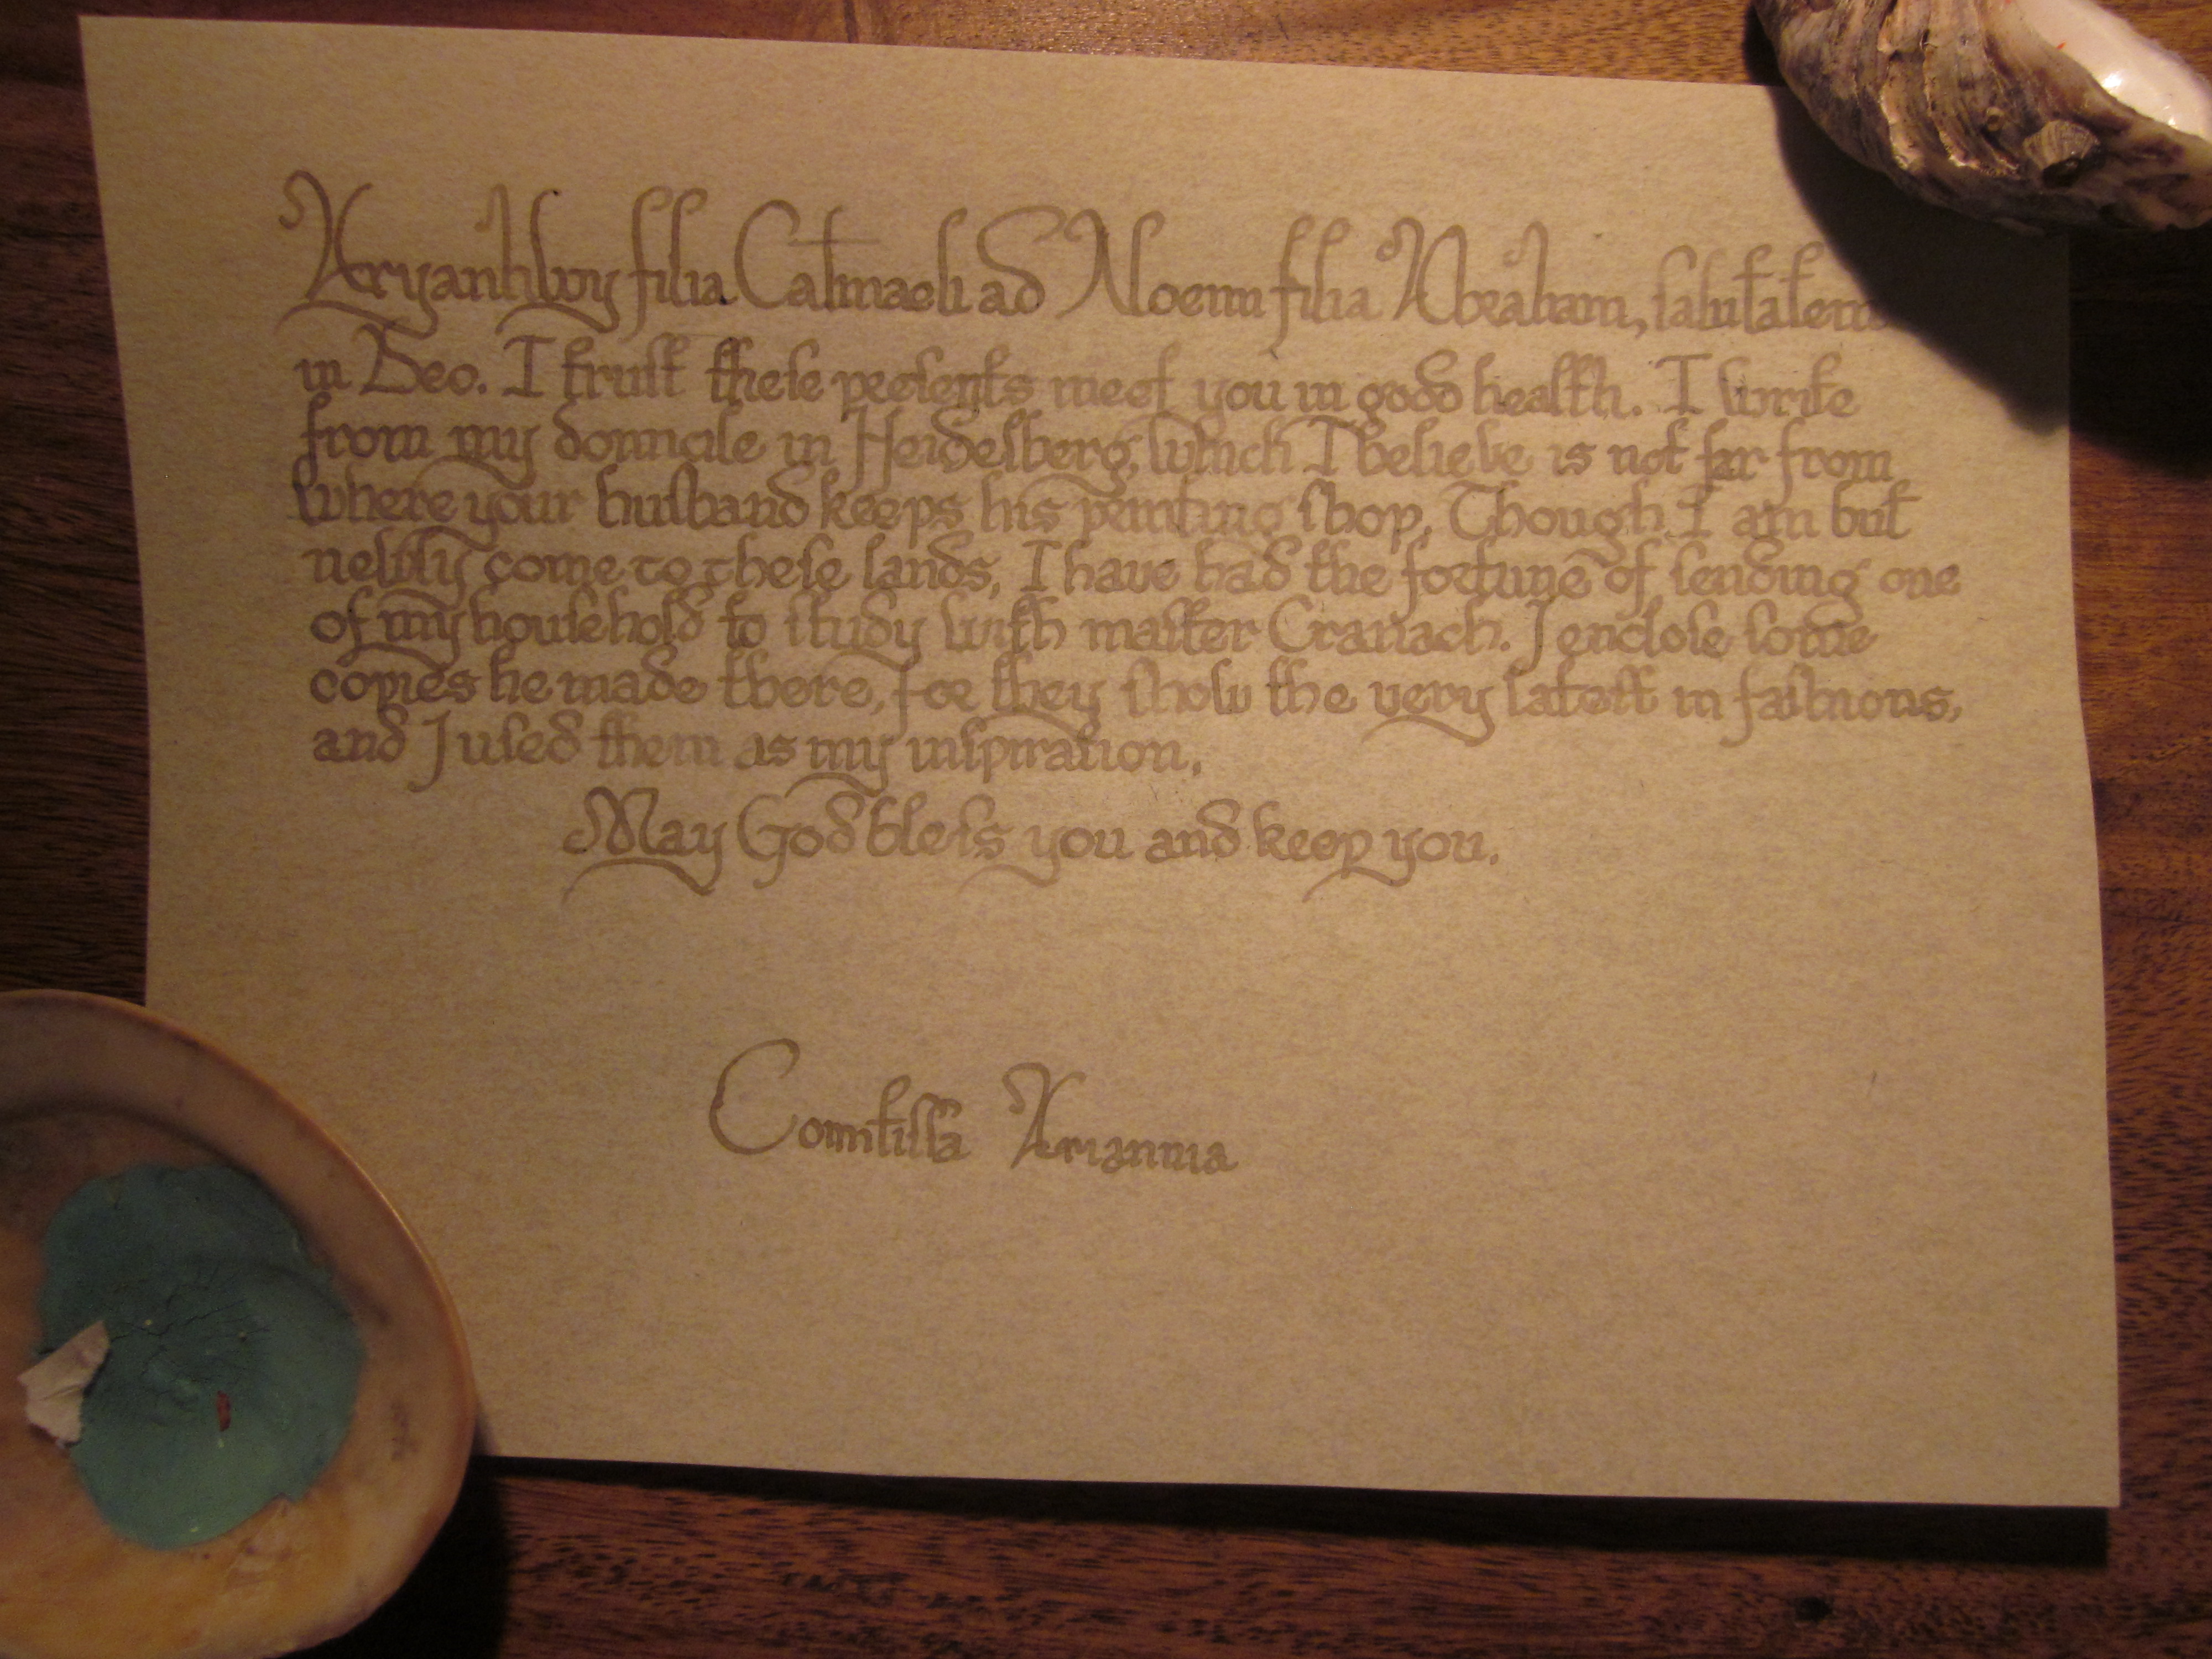 Aryanhwy filia Catmaeli ad Noemi filia Abraham, salutatem
in Deo. I trust these presents meet you in good health. I write
from my domicile in Heidelberg, which I believe is not far from
where your husband keeps his printing shop. Though I am but
newly come to these lands, I have had the fortune of sending one
of my household to study with master Cranach. I enclose some
copies he made there, for they show the very latest in fashions,
and I used them as my inspiration.
May God bless you and keep you.
Comitissa Arianna